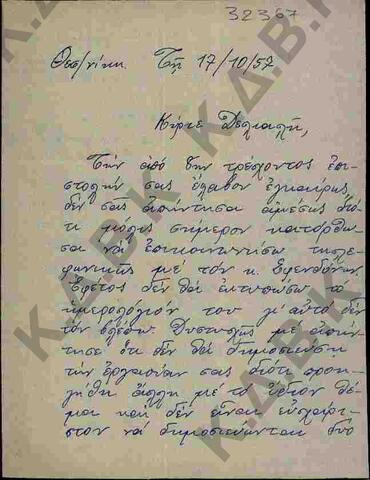 32367
Θεσ/νίκη. Τῇ 17/10/57
Κύριε Δεληαλῆ,
Τὴν ἀπὸ 8ην τρέχοντος ἐπι-
στολήν σας ἔλαβον ἐγκαίρως,
δὲν σας ἀπήντησα ἀμέσως διό-
τι μόλις σήμερον κατόρθω-
σα νὰ ἐπικοινωνήσω τηλε-
φωνικῶς μὲ τὸν κ.
Ἐφέτος δὲν θὰ ἐκτυπώσω τὸ
ἡμερολόγιόν του γι' αὐτὸ δὲν
τὸν βλέπω. Δυστυχῶς μὲ ἀπήν-
τησε ὅτι δὲν θὰ δημοσιεύση
τὴν ἐργασίαν σας διότι προη-
γήθη ἄλλη μὲ τὸ ἴδιον θέ-
μα καὶ δὲν εἶναι εὐχάρι-
στον νὰ δημοσιεύωνται δύο
Κ.Δ.Β.Κ